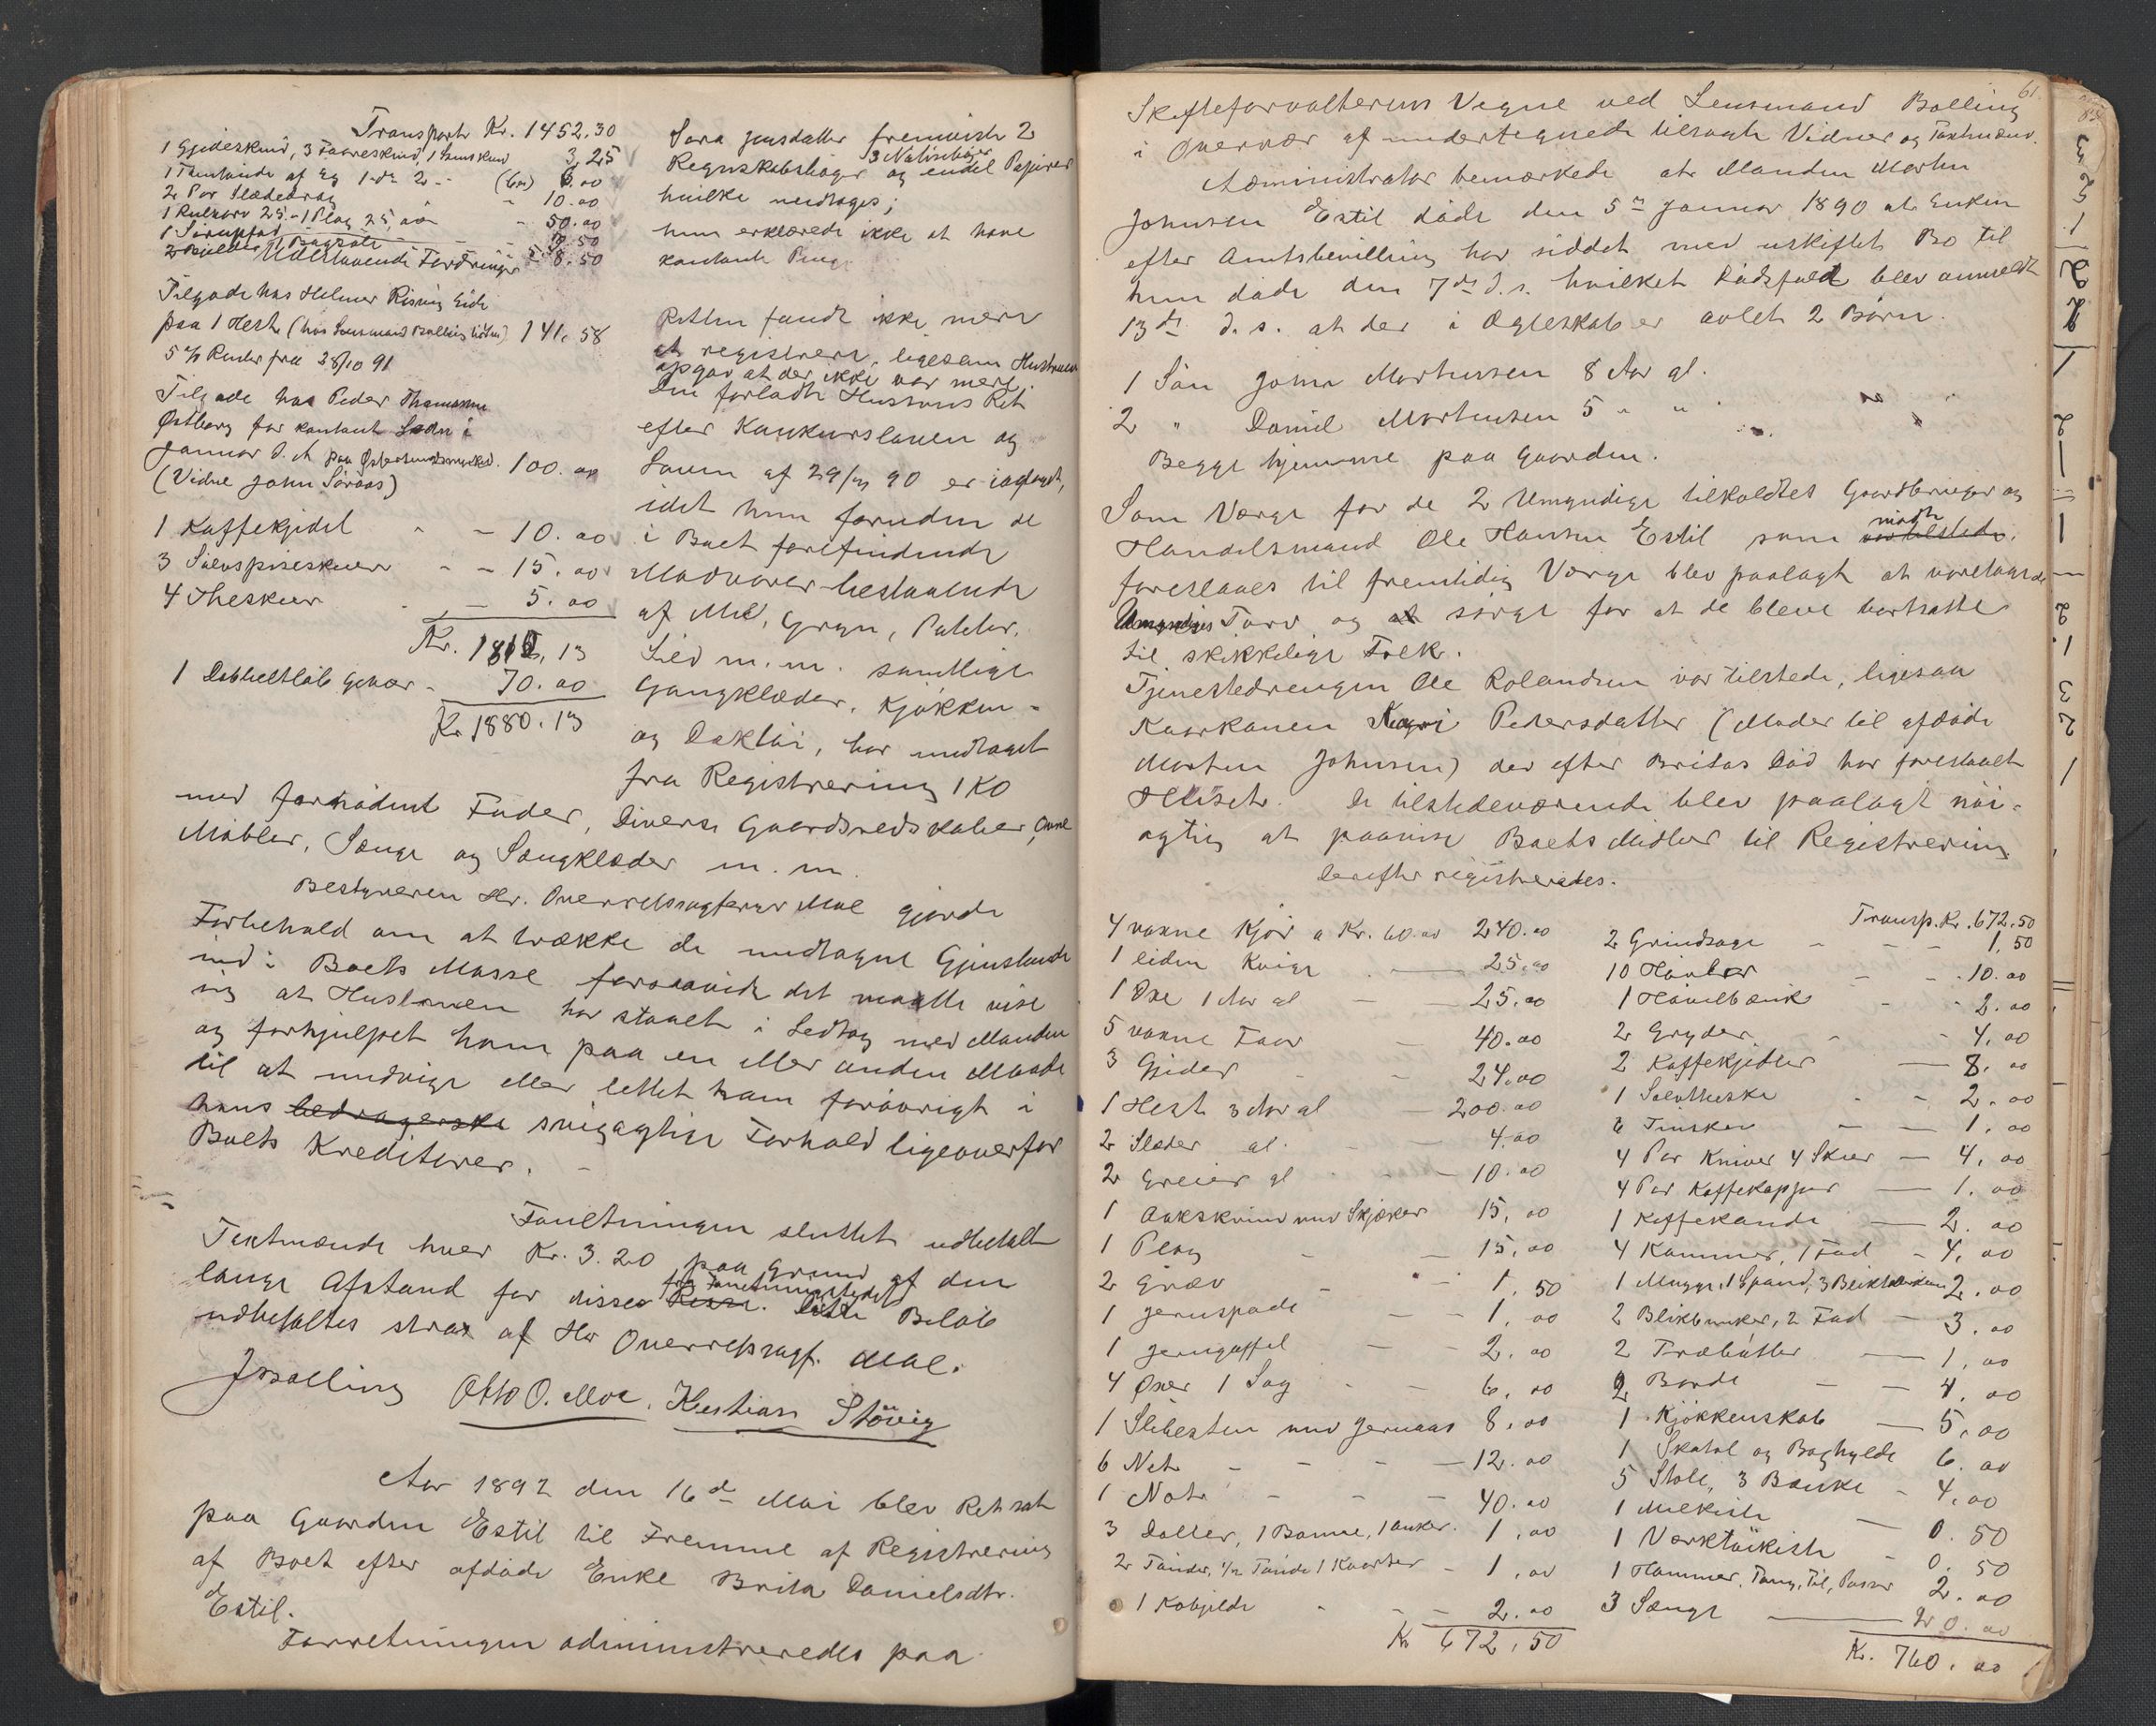 Transport Kr. 1452.30
1 Gjedeskind, 3 Faareskind, 1 Huuskind 3,25
1 Tønde af Eg 1 do 2 - (6 m) 6.00
2 Par Slædedrag - 10.00
1 Kulkarv 25.- 1 Plog 25,00 - 50.00
1 Sirupsfad
2 Bjelder 1 Bagsale 5 8.50
Udestaaende Fordringer
Tilgode hos Helmer Rising Eide
paa 1 Hest (hos Lensmand Bolling) 141.58
5 % Renter fra 28/10 91
Tilgode hos Peder Thomassen
Østborg for kontant Laan i
Januar d. A paa Østersundsmarked. 100.00
(Vidne John Søraas)
1 Kaffekjedel - - 10.00
3 Sølvspiseskeer - - 15.00
4 Theskeer - 5.00
Kr. 1810,13
1 Dobbeltløb Gevær - 70.00
Kr. 1880.13
Sara Jensdatter fremviste 2
3 Notisbøger
Regnskabsbøger og endel Papirer
hvilke medtoges;
hun erklærede ikke at have
kontante Penge
Retten fandt ikke mere
at registrere, ligesom Hustruen
opgav at der ikke var mere.
Den forladte Hustrus Ret
efter Konkursloven og
Loven af 29/ 90 er iagttaget,
idet hun foruden de
i Boet forefindende
Madvarer bestaaende
af Mel, Gryn, Poteter,
Sild m.m. samtlige
Gangklæder, Kjøkken-
og Daktøi, har undtaget
fra Registrering 1 Ko
med fornødent Foder, Diverse Gaardsredskaber, Ovne
Møbler, Senge og Sengklæder m.m.
Bestyreren Hr. Overretssagfører Moe gjorde
Forbehold om at trække de undtagne Gjenstande
ind i Boets Masse forsaavidt det maatte vise
sig at Hustruen har staaet i Ledtog med Manden
og forhjulpet ham paa en eller anden Maade
til at undvige eller lettet ham forøvrigt i
hans bedragerske svigagtige Forhold ligeoverfor
Boets Kreditorer. -
Forretningen sluttet udbetalt
Taxtmænde hver Kr. 3.20 paa Grund af den
fra Forretningsstedet
lange Afstand for disses Reise. Dette Beløb
udbetaltes strax af Hr Overretssagf. Moe.
J Bolling Otto O. Moe. Kristian Støvig
Aar 1892 den 16de Mai blev Ret sat
paa Gaarden Estil til Fremme af Registrering
af Boet efter afdøde Enke Brita Danielsdtr.
Estil.
Forretningen administreredes paa
61.
Skifteforvalterens Vegne ved Lensmand Bolling
i Overvær af undertegnede tilsagte Vidner og Taxtmænd.
Administrator bemærkede at Manden Morten
Johnsen Estil døde den 5te Januar 1890 at Enken
efter Amtsbevilling har siddet med uskiftet Bo til
hun døde den 7de d.s. hvilket Dødsfald blev anmeldt
13de d.s. at der i Ægteskab er avlet 2 Børn.
1 Søn John Mortensen 8 Aar gl.
2 " Daniel Mortensen 5 " "
Begge hjemme paa Gaarden.
Som Værge for de 2 Umyndige tilkaldtes Gaardbruger og
mødte
Handelsmand Ole Hansen Estil som var tilstede.
foreslaaes til fremtidig Værge blev paalagt at varetage de
Umyndiges Tarv og at sørge for at de bleve bortsatte
til skikkelige Folk.
Tjenestedrengen Ole Rolandsen var tilstede, ligesaa
Kaarkonen Kari Pedersdatter (Moder til afdøde
Morten Johnsen) der efter Britas Død har forestaaet
Huset. De tilstedeværende blev paalagt nøi-
agtig at paavise Boets Midler til Registrering
Derefter registreredes.
4 voxne Kjør a Kr. 60.00 240.00
1 liden Kvige - 25.00
1 Oxe 1 Aar gl - - 25.00
5 voxne Faar - 40.00
3 Gjeder - - 24.00
1 Hest 3 Aar gl - 200.00
2 Slæder gl. - - 4.00
2 Greier gl - - 10.00
1 Aakskrind med Skjæker 15,00
1 Plog - - 15.00
2 Græv - - 1,50
1 Jernspade - - 1,00
1 Jerngaffel - - 2.00
4 Øxer 1 Sag - - 6,00
1 Slibesten med Jernaas 8,00
6 Net - - - - 12.00
1 Not - - - 40.00
3 Daller, 1 Bomme, 1 Anker. 1,00
2 Tønder, 1/2 Tønde 1 Kvarter - 1,00
1 Kobjelde - - - 2.00
Kr 672,50
Transp. Kr. 672.50
2 Grindsage - - - 1,50
10 Høvler - - 10.00
1 Høvelbænk - - 2.00
2 Gryder - - 4,00
2 Kaffekjedler - 8.00
1 Sølvtheske - - 2.00
6 Tinskeer - - 1.00
4 Par Kniver 4 Skeer - 4,00
4 Par Kaffekopper - 1.00
1 Kaffekande - 2.00
4 Kummer, 1 Fad - 4,00
1 Mugge, 1 Spand, 3 Bliktallerkener 2.00
2 Blikbunker, 2 Fad - 3.00
2 Træbøtter - 1,00
2 Borde - - 4.00
1 Kjøkkenskab - 5,00
1 Skatol og Boghylde 6.00
5 Stole, 3 Bænke - 4,00
1 Melkiste - 0.50
1 Værktøikiste - 0.50
1 Hammer, Tang, Fil, Passer 2.00
3 Senge - 20.00
Kr. 760.00